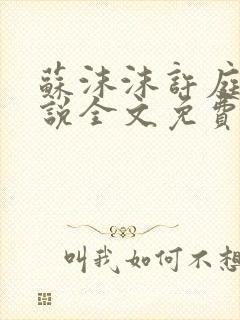 蘇沫沫許庭
說全文免費
叫我如何不想